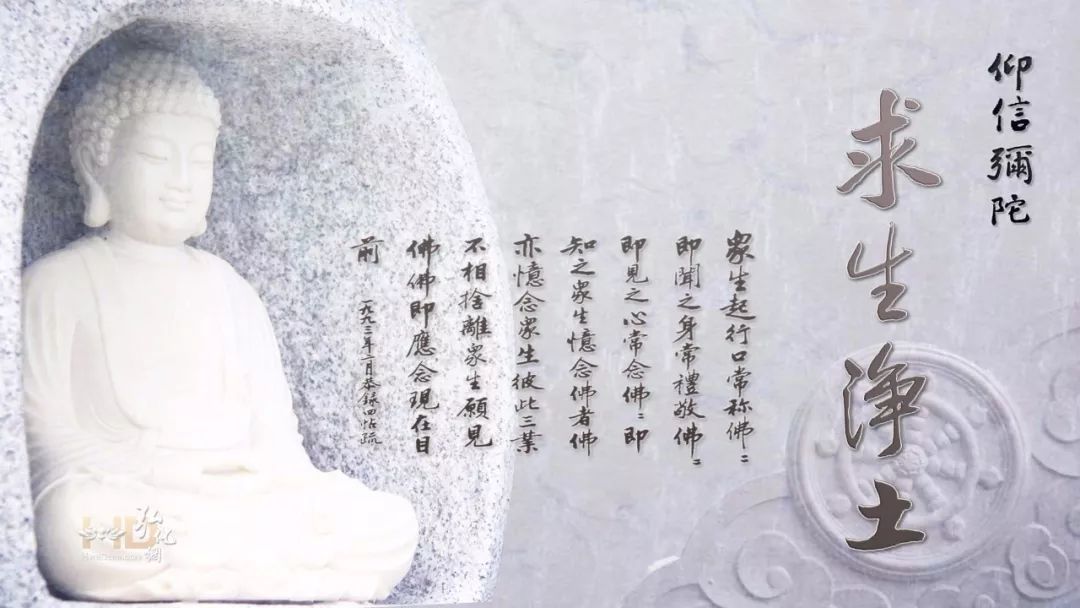 仰信彌陀
求生淨土
眾生起行口常称佛〻
即聞之身常禮敬佛〻
即見之心常念佛〻即
知之眾生憶念佛者佛
亦憶念眾生彼此三業
不相捨離眾生願見
佛佛即應念現在目
前
一九九三年二月恭録四帖疏
弘化網